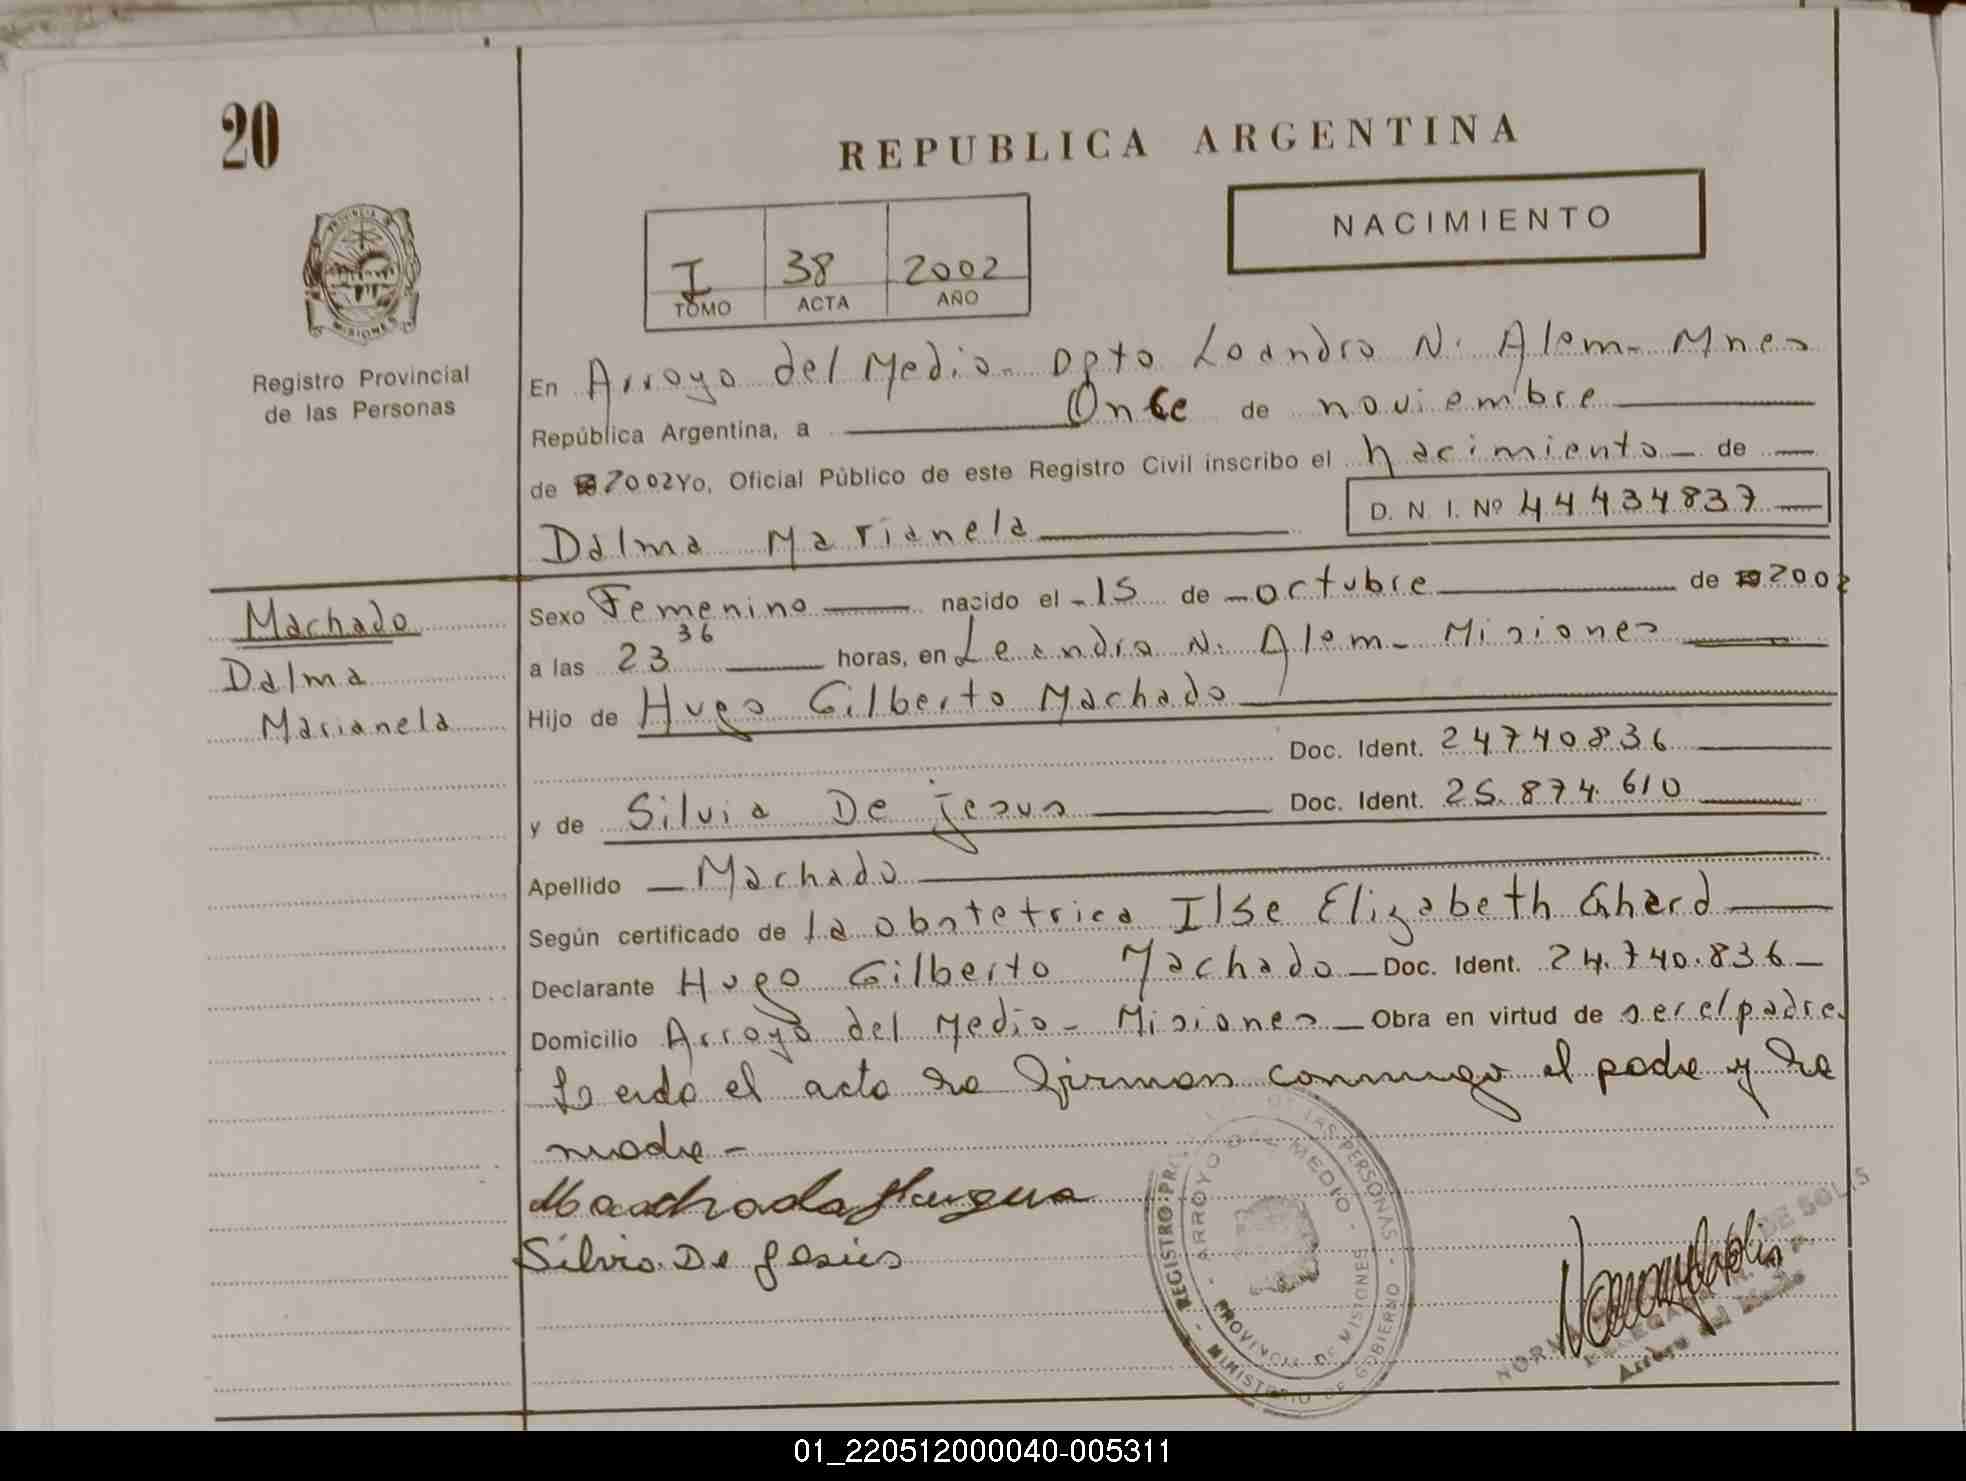 20
REPUBLICA ARGENTINA
NACIMIENTO
I 38 2002
TOMO ACTA AÑO
PROVINCIA DE MISIONES
Registro Provincial
de las Personas
En Arroyo del Medio - Dpto Leandro N. Alem - Mnes
República Argentina, a Once de noviembre
de 2002 Yo, Oficial Público de este Registro Civil inscribo el nacimiento de
Dalma Marianela D. N. I. Nº 44434837
Machado
Dalma
Marianela
Sexo Femenino nacido el 15 de octubre de 2002
a las 23 36 horas, en Leandro N. Alem - Misiones
Hijo de Hugo Gilberto Machado
Doc. Ident. 24740836
y de Silvia De jesus Doc. Ident. 25.874.610
Apellido Machado
Según certificado de la obstetrica Ilse Elizabeth Ghard
Declarante Hugo Gilberto Machado Doc. Ident. 24.740.836
Domicilio Arroyo del Medio - Misiones Obra en virtud de ser el padre.
Leida el acta la firman conmigo el padre y la
madre -
Machado Hugo
Silvia De Jesús
REGISTRO DE LAS PERSONAS
ARROYO DEL MEDIO
PROVINCIA DE MISIONES
MINISTERIO DE GOBIERNO
NORMA DE SOLIS
DELEGADA
Arroyo del Medio
01_220512000040-005311